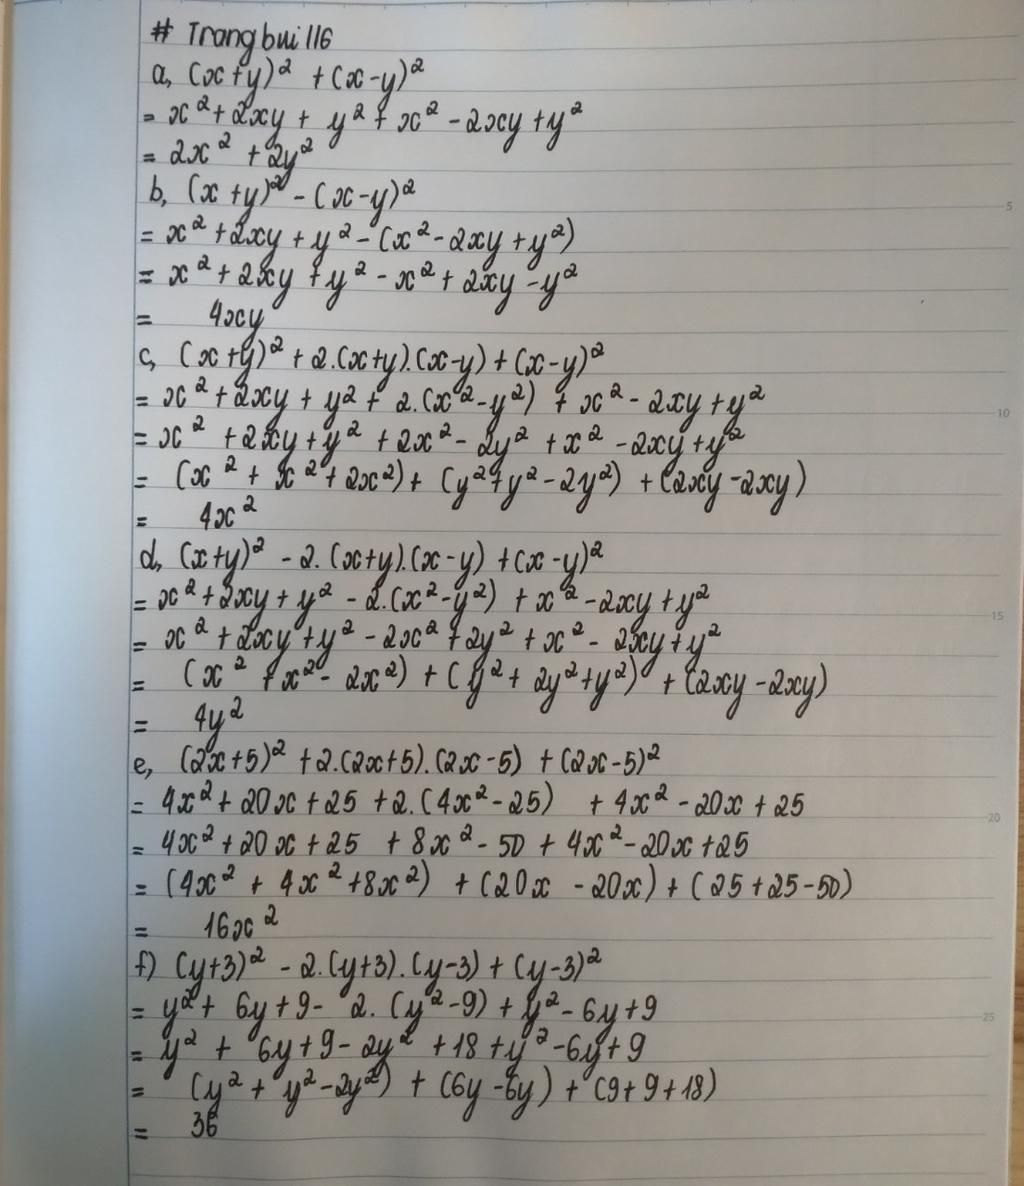 # Trangbui116
a, (x+y)² + (x-y)²
= x² + 2xy + y² + x² - 2xy + y²
= 2x² + 2y²
b, (x+y)² - (x-y)²
= x² + 2xy + y² - (x² - 2xy + y²)
= x² + 2xy + y² - x² + 2xy - y²
= 4xy
c, (x+y)² + 2.(x+y).(x-y) + (x-y)²
= x² + 2xy + y² + 2.(x² - y²) + x² - 2xy + y²
= x² + 2xy + y² + 2x² - 2y² + x² - 2xy + y²
= (x² + x² + 2x²) + (y² + y² - 2y²) + (2xy - 2xy)
= 4x²
d, (x+y)² - 2.(x+y).(x-y) + (x-y)²
= x² + 2xy + y² - 2.(x² - y²) + x² - 2xy + y²
= x² + 2xy + y² - 2x² + 2y² + x² - 2xy + y²
= (x² + x² - 2x²) + (y² + 2y² + y²) + (2xy - 2xy)
= 4y²
e, (2x+5)² + 2.(2x+5).(2x-5) + (2x-5)²
= 4x² + 20x + 25 + 2.(4x² - 25) + 4x² - 20x + 25
= 4x² + 20x + 25 + 8x² - 50 + 4x² - 20x + 25
= (4x² + 4x² + 8x²) + (20x - 20x) + (25 + 25 - 50)
= 16x²
f) (y+3)² - 2.(y+3).(y-3) + (y-3)²
= y² + 6y + 9 - 2.(y² - 9) + y² - 6y + 9
= y² + 6y + 9 - 2y² + 18 + y² - 6y + 9
= (y² + y² - 2y²) + (6y - 6y) + (9 + 9 + 18)
= 36
5
10
15
20
25